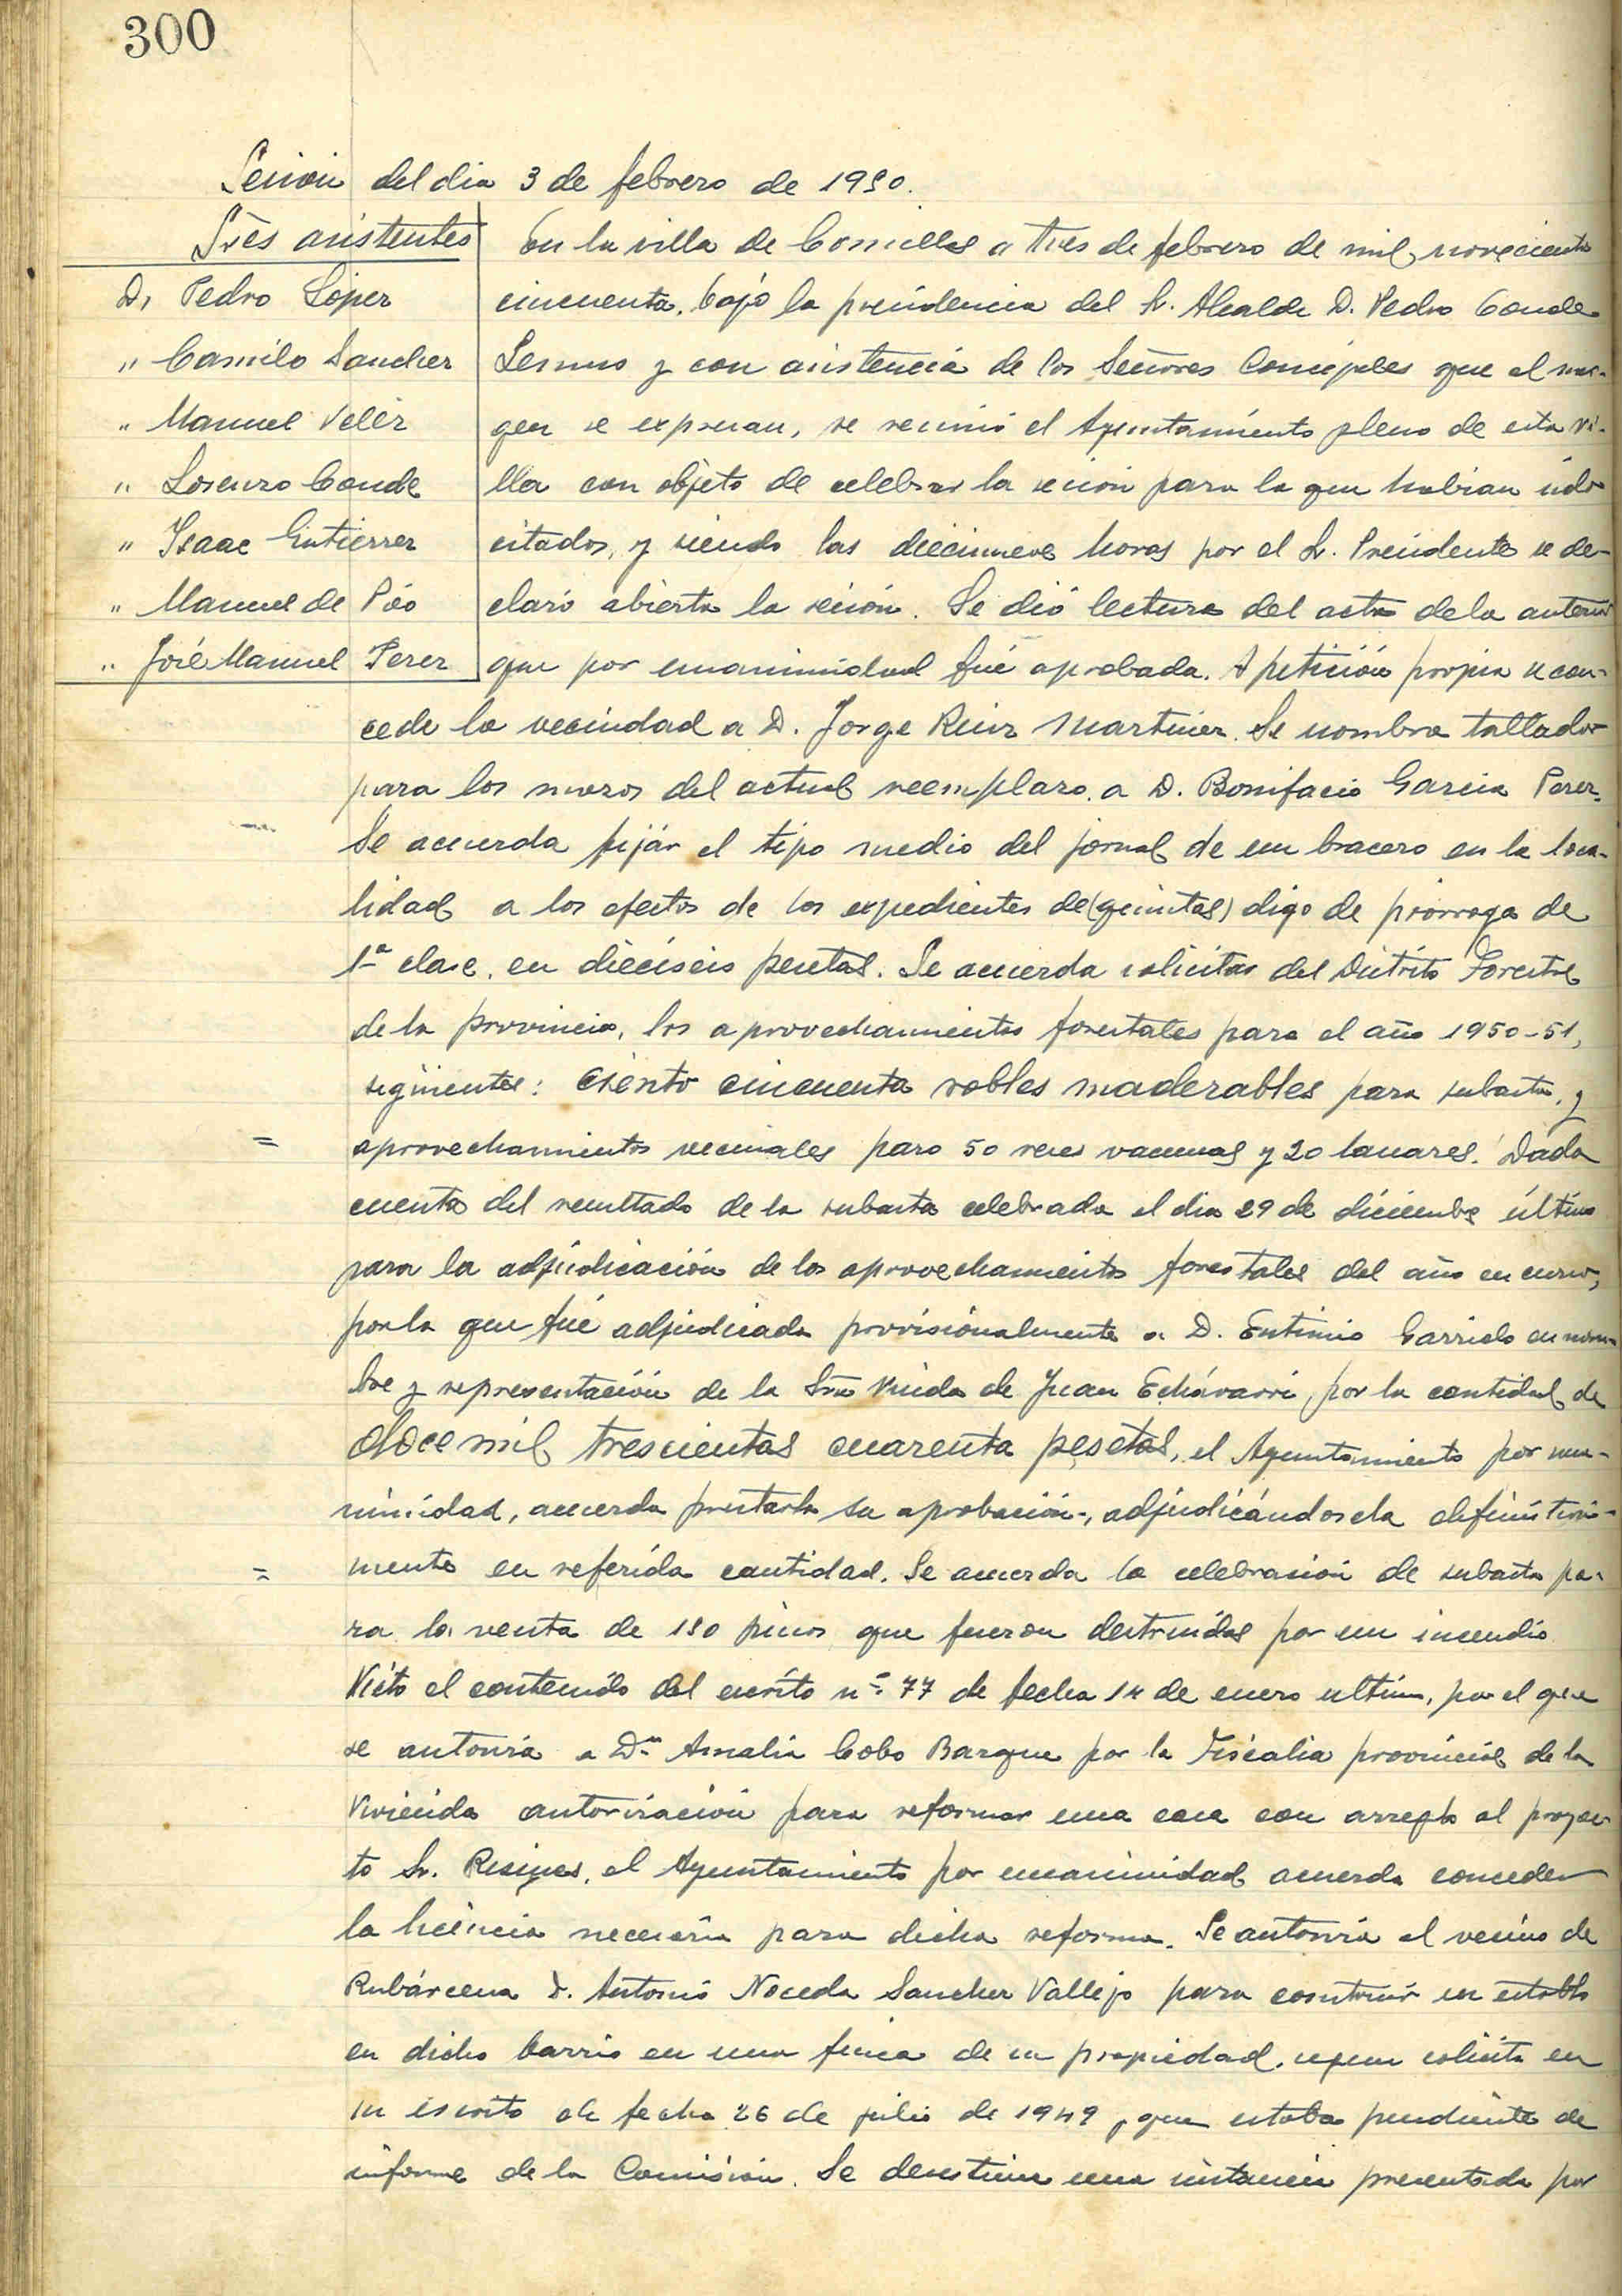 300
Sesión del dia 3 de febrero de 1950.
Sres asistentes
D. Pedro López
" Camilo Sanchez
" Manuel Velez
" Lorenzo Conde
" Isaac Gutierrez
" Manuel de Pio
" José Manuel Perez
En la villa de Comillas a tres de febrero de mil novecientos
cincuenta, bajo la presidencia del Sr. Alcalde D. Pedro Conde
Lemus y con asistencia de los Señores Concejales que al mar-
gen se expresan, se reunió el Ayuntamiento pleno de esta vi-
lla con objeto de celebrar la sesión para la que habian sido
citados, y siendo las diecinueve horas por el Sr. Presidente se de-
claró abierta la sesión. Se dió lectura del acta de la anterior
que por unanimidad fué aprobada. A petición propia se con-
cede la vecindad a D. Jorge Ruiz Martinez. Se nombra tallador
para los mozos del actual reemplazo, a D. Bonifacio Garcia Perez.
Se acuerda fijár el tipo medio del jornal de un bracero en la loca-
lidad a los efectos de los expedientes de (quintas) digo de prórroga de
1ª clase, en dieciseis pesetas. Se acuerda solicitar del Distrito Forestal
de la provincia, los aprovechamientos forestales para el año 1950-51,
siguientes: ciento cincuenta robles maderables para subasta, y
= aprovechamientos vecinales para 50 reses vacunas y 20 lanares. Dada
cuenta del resultado de la subasta celebrada el dia 29 de diciembre último
para la adjudicación de los aprovechamientos forestales del año en curso,
por la que fué adjudicada provisionalmente a D. Eutimio Garrido en nom-
bre y representación de la Sra Viuda de Juan Echávarri, por la cantidad de
doce mil trescientas cuarenta pesetas, el Ayuntamiento por una-
nimidad, acuerda prestarla su aprobación, adjudicándosela definitiva-
= mente en referida cantidad. Se acuerda la celebración de subasta pa-
ra la venta de 150 pinos que fueron destruidos por un incendio.
Visto el contenido del escrito nº 77 de fecha 14 de enero ultimo, por el que
se autoriza a Dª Amalia Cobo Barque por la Fiscalia provincial de la
Vivienda autorización para reformar una casa con arreglo al proyec-
to Sr. Resines, el Ayuntamiento por unanimidad acuerda conceder
la licencia necesaria para dicha reforma. Se autoriza al vecino de
Rubárcena D. Antonio Noceda Sanchez Vallejo para construir un establo
en dicho barrio en una finca de su propiedad, segun solicita en
su escrito de fecha 26 de julio de 1949, que estaba pendiente de
informe de la Comisión. Se desestima una instancia presentada por